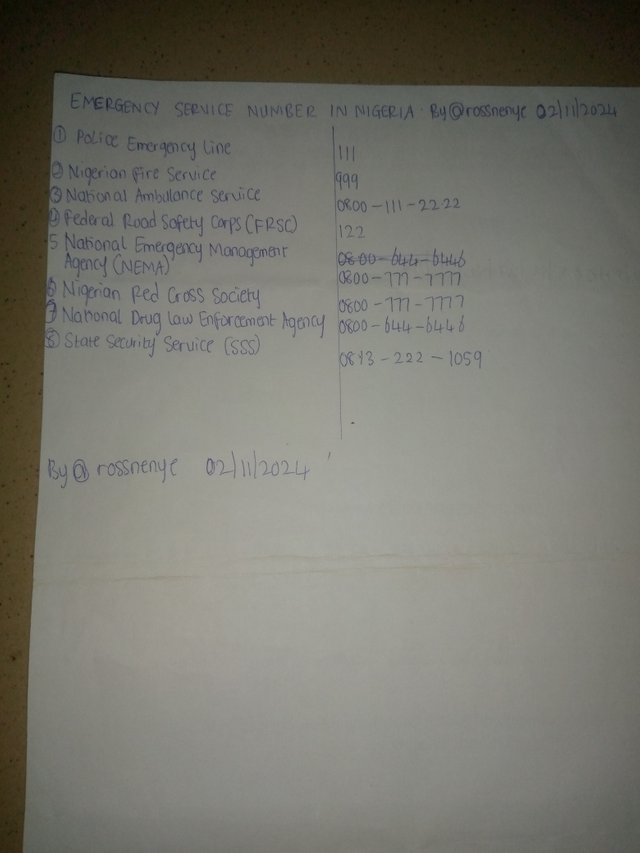 EMERGENCY SERVICE NUMBER IN NIGERIA. By @rossnenye 02/11/2024
① Police Emergency Line 111
② Nigerian Fire Service 999
③ National Ambulance Service 0800-111-2222
④ Federal Road Safety Corps (FRSC) 122
5 National Emergency Management 0800-644-6446
Agency (NEMA) 0800-777-7777
⑥ Nigerian Red Cross Society 0800-777-7777
⑦ National Drug Law Enforcement Agency 0800-644-6446
⑧ State Security Service (SSS) 0813-222-1059
By @rossnenye 02/11/2024